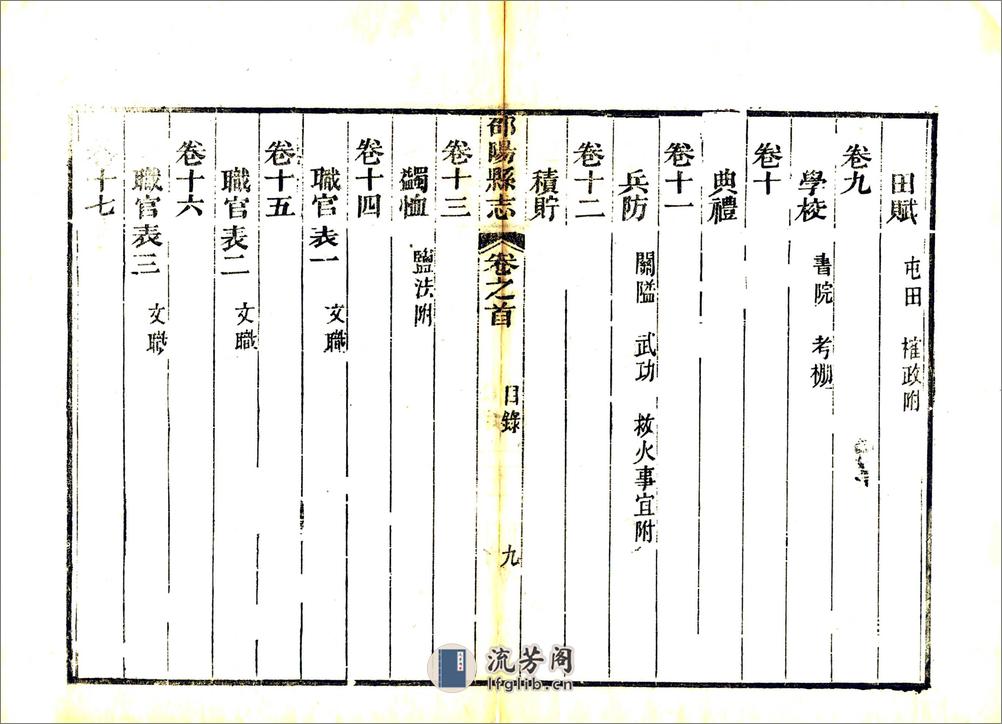 田賦 屯田 榷政附
卷九
學校 書院 考棚
卷十
典禮
卷十一
兵防 關隘 武功 救火事宜附
卷十二
積貯
邵陽縣志 卷之首 目錄 九
卷十三
蠲恤 鹽法附
卷十四
職官表一 文職
卷十五
職官表二 文職
卷十六
職官表三 文職
卷十七
流芳阁
lfglib.cn